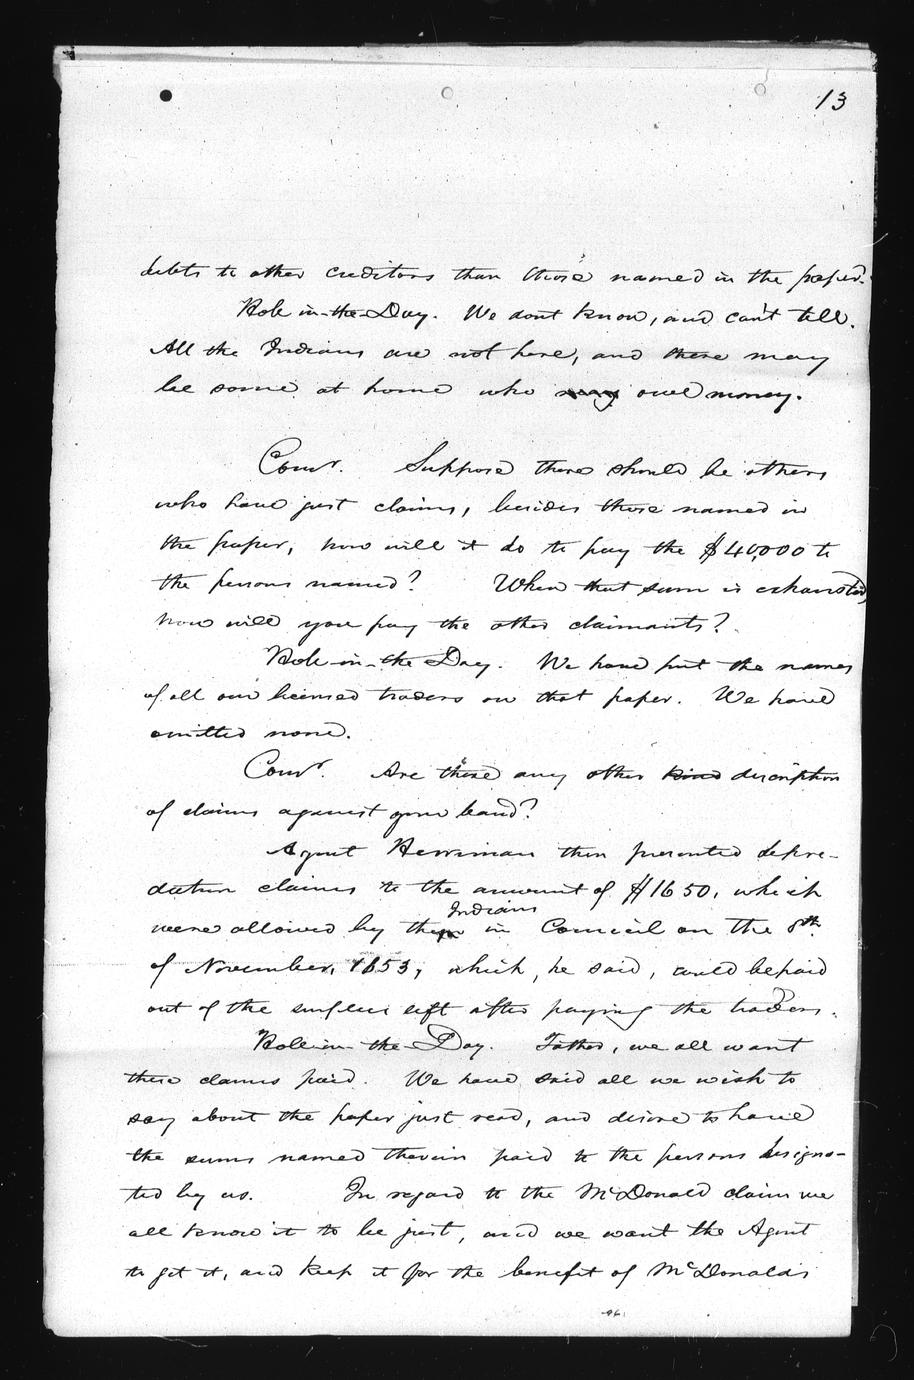 13
debts to other creditors than those named in the paper.
Hole-in-the-Day. We dont know, and can't tell.
All the Indians are not here, and there may
be some at home who may owe money.
Comr. Suppose there should be others
who have just claims, besides those named in
the paper, how will it do to pay the $40,000 to
the persons named? When that sum is exhausted,
how will you pay the other claimants?
Hole-in-the-Day. We have put the names
of all our licensed traders on that paper. We have
omitted none.
Comr. Are there any other kind description
of claims against your band?
Agent Herriman then presented depre-
dation claims to the amount of $1650, which
were allowed by the Indians in Council on the 8th
of November, 1853, which, he said, could be paid
out of the surplus left after paying the traders.
Hole-in-the-Day. Father, we all want
these claims paid. We have said all we wish to
say about the paper just read, and desire to have
the sums named therein paid to the persons designa-
ted by us. In regard to the McDonald claim we
all know it to be just, and we want the Agent
to get it, and keep it for the benefit of McDonald's